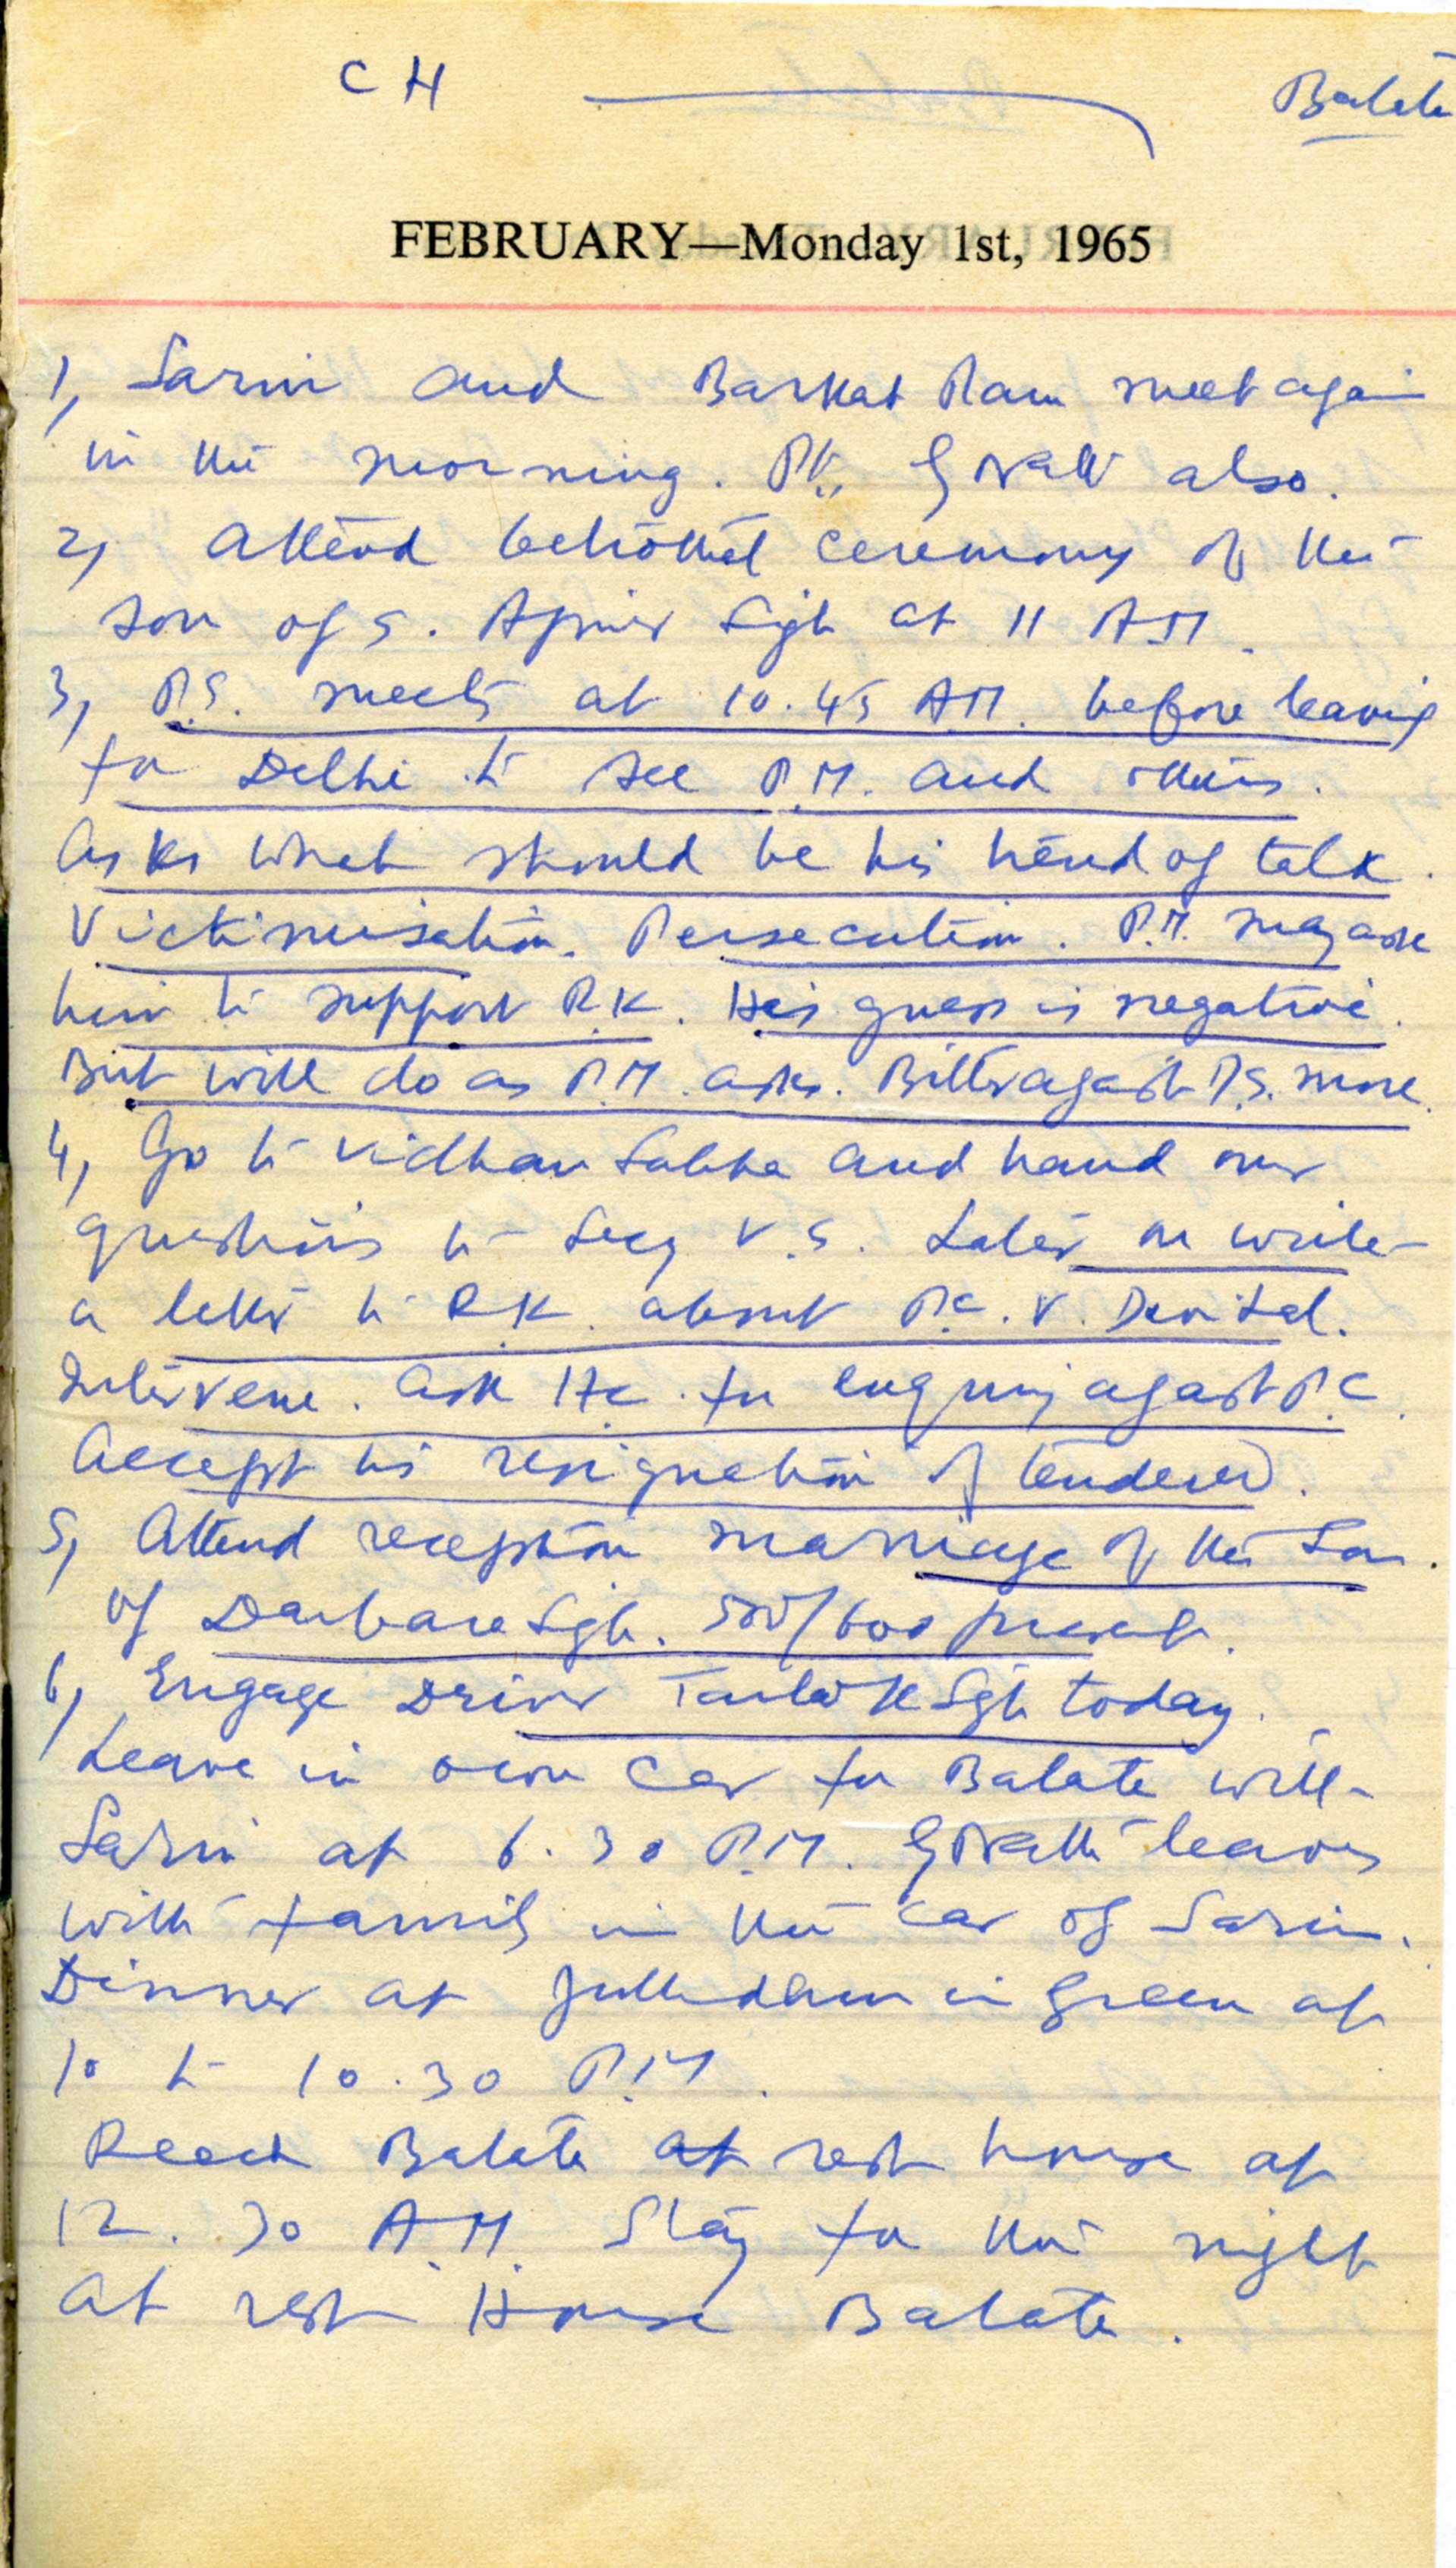 CH Batala
FEBRUARY—Monday 1st, 1965
1, Sarin and Barkat Ram meet again
in the morning. also.
2, Attend betrothal ceremony of the
son of S. Singh at 11 A.M.
3, P.S. meets at 10.45 A.M. before leaving
for Delhi to see P.M. and others.
Asks what should be his trend of talk.
Victimisation. Persecution. P.M. may ask
him to support R.K. His guess is negative.
But will do as P.M. asks. Bitter against P.S. more.
4, Go to Vidhan Sabha and hand over
questions to Secy V.S. Later on write
a letter to R.K. about P.C. V. Devi Lal.
Intervene. Ask H.C. for enquiry against P.C.
Accept his resignation if tendered.
5, Attend reception marriage of the Son.
of Darbara Sgh. 500/600 present.
6, Engage Driver Tarlok Sgh today.
Leave in own Car for Batala with
Sarin at 6.30 P.M. leaves
with family in the car of Sarin.
Dinner at Jullundur in Green at
10 to 10.30 P.M.
Reach Batala at rest house at
12.30 A.M. Stay for the night
at rest House Batala.